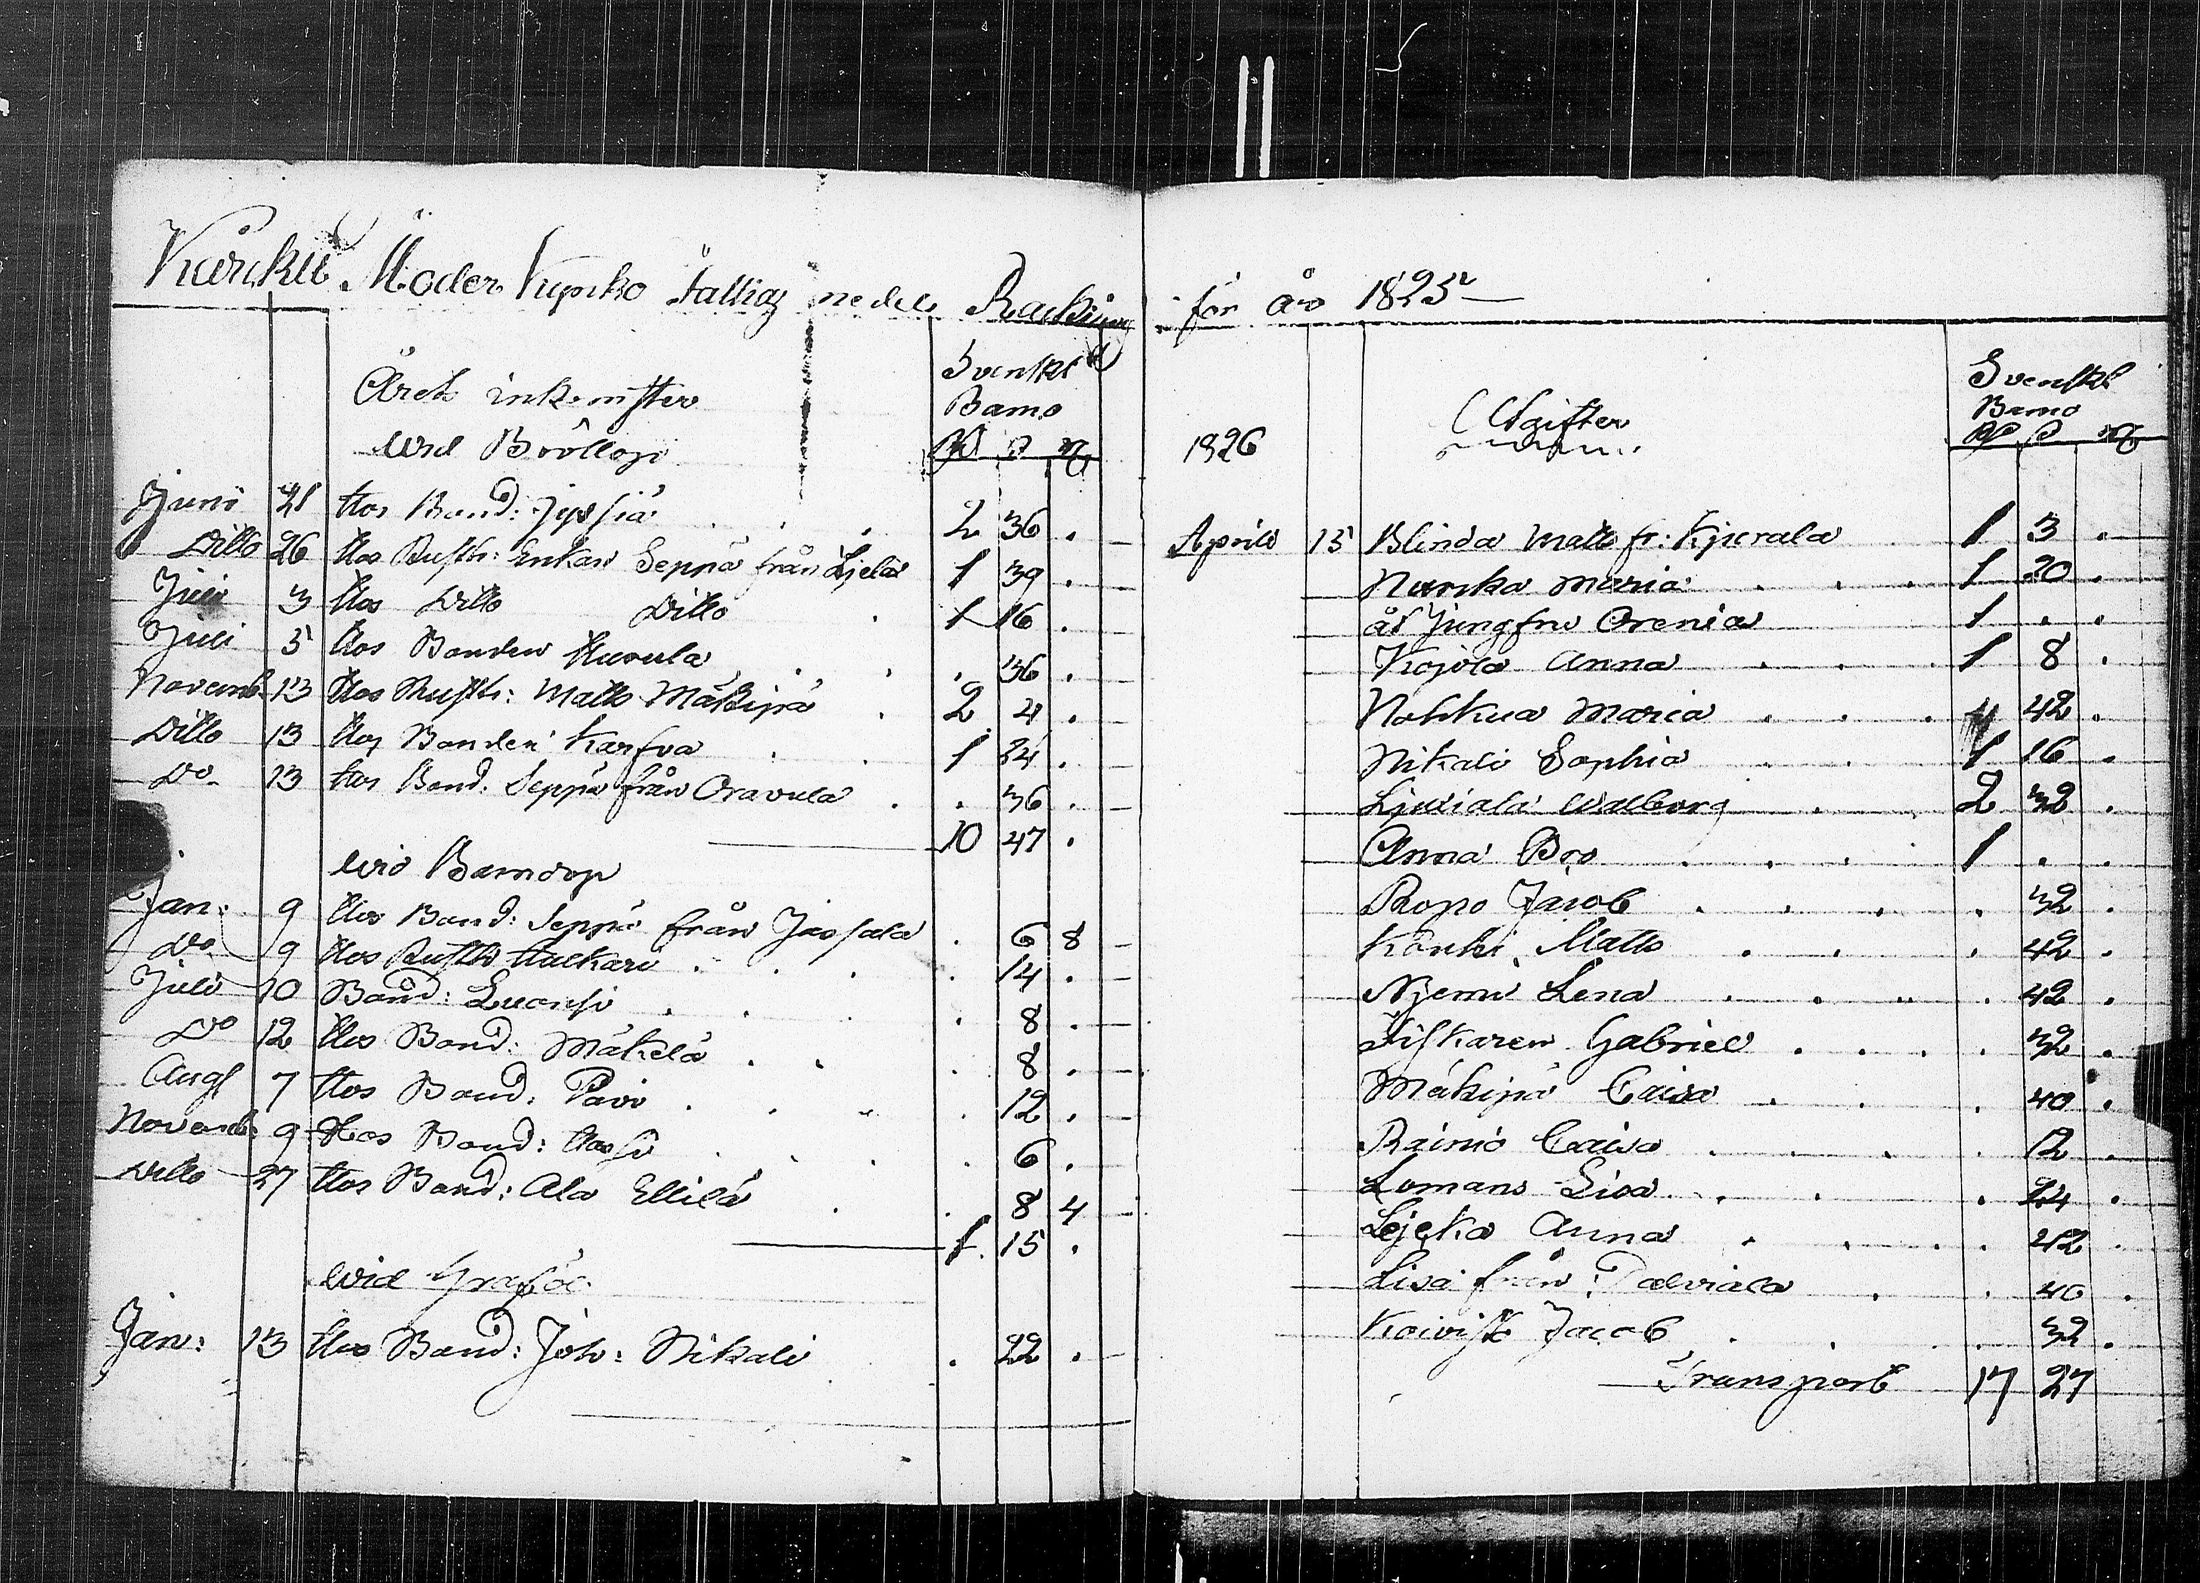 Moder Kyrko fattig medels Räkning för år 1825
Året inkomster
Svenskt
Banco
Wid Bröllop
Juni 21 Hos Bond: Jyssiä . . 2 36 .
Ditto 26 Hos Rusth: Enkan Seppä från 1 39 .
Juli 3 Hos Ditto Ditto . 1 16 .
Juli 5 Hos Bonden Hurula . . . 36 .
Novemb 13 Hos Rusth: Matts Mäkipä . 2 4 .
Ditto 13 Hos Bonden Karfva . . 1 24 .
Do 13 Hos Bond. Seppä från Oravula . . 36 .
10 47 .
Wid Barndop
Jan: 9 Hos Bond: Seppä från Jassala . 6 8
Do 9 Hos Rusth . . . 14 .
Juli 10 Bond: . . . 8 .
Do 12 Hos Bond: Mäkelä . . . 8 .
Aug 7 Hos Bond. Pavo . . . 12 .
Novemb 9 Hos Bond: Hossi . . . 6 .
Ditto 27 Hos Bond: Ala Ellilä . . 8 4
1 15 .
Wid Graföl
Jan: 13 Hos Bond: Joh: Nikali . 22 .
1826
Utgifter
Svenskt
Banco
Aprill 15 Blinda Matts fr: 1 3 .
Maria . . . 1 20 .
åt Jungfru Orenia 1 . .
Kojola Anna . . . 1 8 .
Nohkua Maria . . . 42 .
Nikali Sophia . . 1 16 .
Walborg . . 2 32 .
Anna Bro . . . 1 . .
Ropo Jacob . . . . 32 .
Könki Matts . . . 42 .
Njemi Lena . . . . 42 .
Gabriel . . . . 32 .
Mäkipä Caisa . . . 40 .
Rainio Caisa . . . . 12 .
Lomans Lisa . . . 24 .
Anna . . . . 42 .
Lisa från . . 40 .
Koivisto Jacob . . . 32 .
Transport 17 27